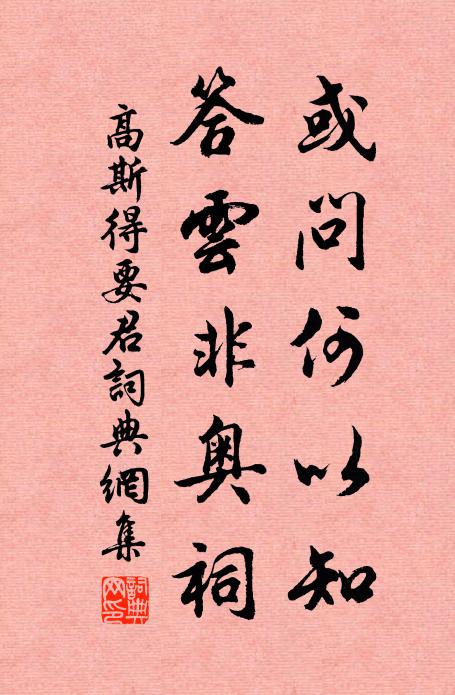 或問何以知
答雲非奧祠
高斯得要君詞典網集
詞典网印